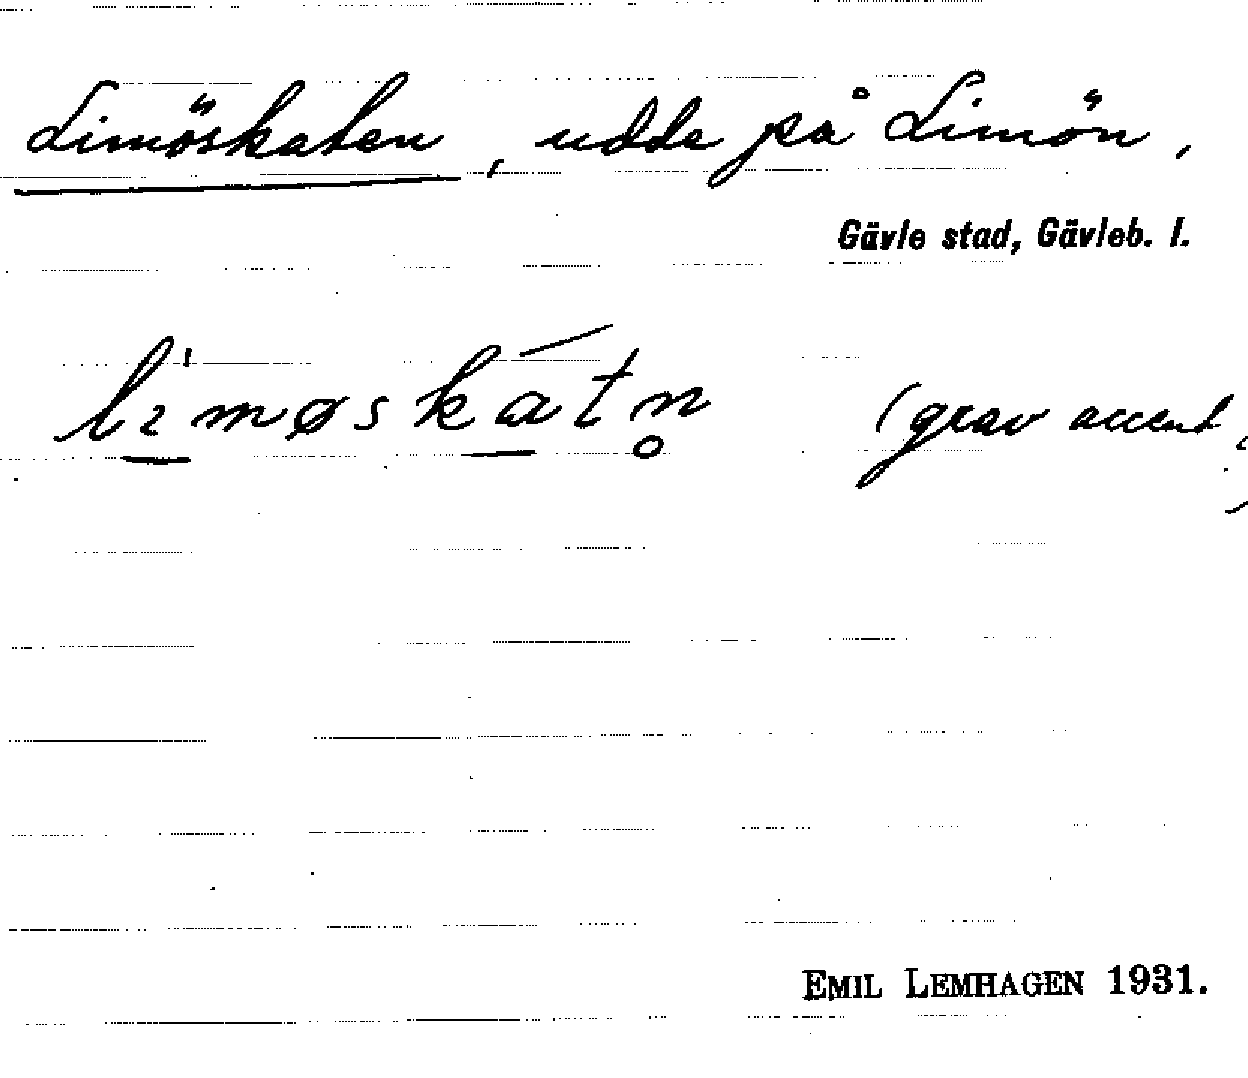 Limöskaten, udde på Limön,
Gävle stad, Gävleb. l.
li̱'møskа̱́tn̥ (grav accent,
EMIL LEMHAGEN 1931.